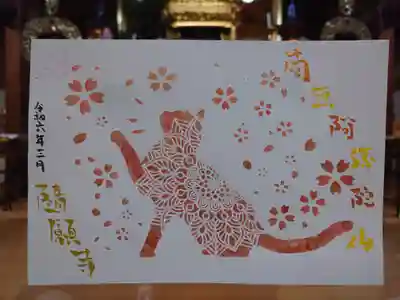 南無阿弥陀仏
令和六年二月
随願寺